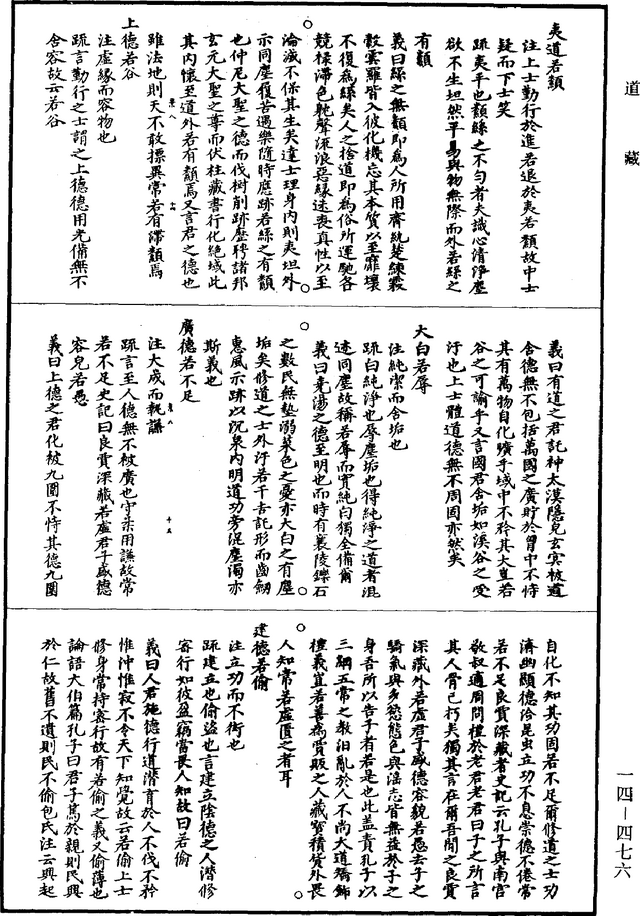 道藏
夷道若纇
注上士勤行於進若退於夷若纇故中士
疑而下士笑
疏夷平也纇絲之不勻者夫識心清淨塵
欲不生坦然平易與物無際而外若絲之
有纇
義曰絲之無纇即為人所用齊紈楚練霧
縠雲羅皆入彼化機忘其本質以至靡壞
不復為絲矣人之捨道即為俗所運馳各
競棲滯色馳聲流浪惡緣迷喪真性以至
淪滅不保其生矣達士理身內則夷坦外
示同塵履苦遇樂隨時應跡若絲之有纇
也仲尼大聖之德而伐樹削跡歷聘諸邦
玄元大聖之尊而伏柱藏書行化絕域此
其內懷至道外若有纇焉又言君之德也
雖法地則天不敢摽異常若有滯纇焉
上德若谷
注虛緣而容物也
疏言勤行之士謂之上德德用光備無不
含容故云若谷
義曰有道之君託神太漠隱皃玄冥被道
含德無不包括萬國之廣貯於胷中不恃
其有萬物自化曠乎域中不矜其大豈若
谷之可諭乎又言國君含垢如溪谷之受
汙也上士體道德無不周固亦然矣
大白若辱
注純潔而含垢也
疏白純淨也辱塵垢也得純淨之道者混
迹同塵故稱若辱而實純白獨全備爾
義曰堯湯之德至明也而時有襄陵鑠石
之數民無墊溺菜色之憂亦大白之有塵
垢矣修道之士外汙若干吉託形而齒劒
惠風示跡以沉泉內明道功旁混塵濁亦
斯義也
廣德若不足
注大成而執謙
十五
疏言至人德無不被廣也守柔用謙故常
若不足史記曰良賈深藏若虛君子盛德
容皃若愚
義曰上德之君化被九圍不恃其德九圍
自化不知其功固若不足爾修道之士功
濟幽顯德洽昆虫立功不息崇德不倦常
若不足良賈深藏者史記云孔子與南宮
敬叔適周問禮於老君老君曰子之所言
其人骨已朽矣獨其言在爾吾聞之良賈
深藏外若虛君子盛德容貌若愚去子之
驕氣與多慾態色與淫志皆無益於子之
身吾所以告子者若是也此盖責孔子以
三綱五常之教汨亂於人不尚大道矯飾
禮義宜若善為貨販之人藏智積貨外畏
人知常若虛匱之者耳
建德若偷
注立功而不衒也
疏建立也偷盜也言建立陰德之人潛修
密行如彼盜竊常畏人知故曰若偷
義曰人君施德行道潛育於人不伐不矜
惟沖惟寂不令天下知覺故云若偷上士
修身常持密行故有若偷之義又偷薄也
論語大伯篇孔子曰君子篤於親則民興
於仁故舊不遺則民不偷包氏注云興起
一四—四七六